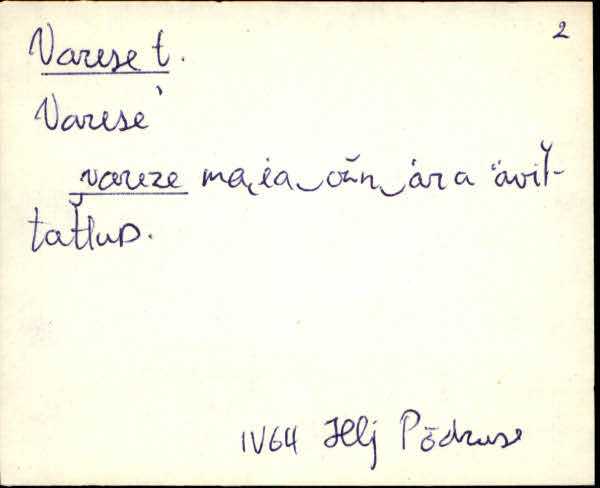 2
Varese t.
Varese'
vareze maia‿ožn‿ära ävit-
tattud.
IV64 Hlj Põdruse